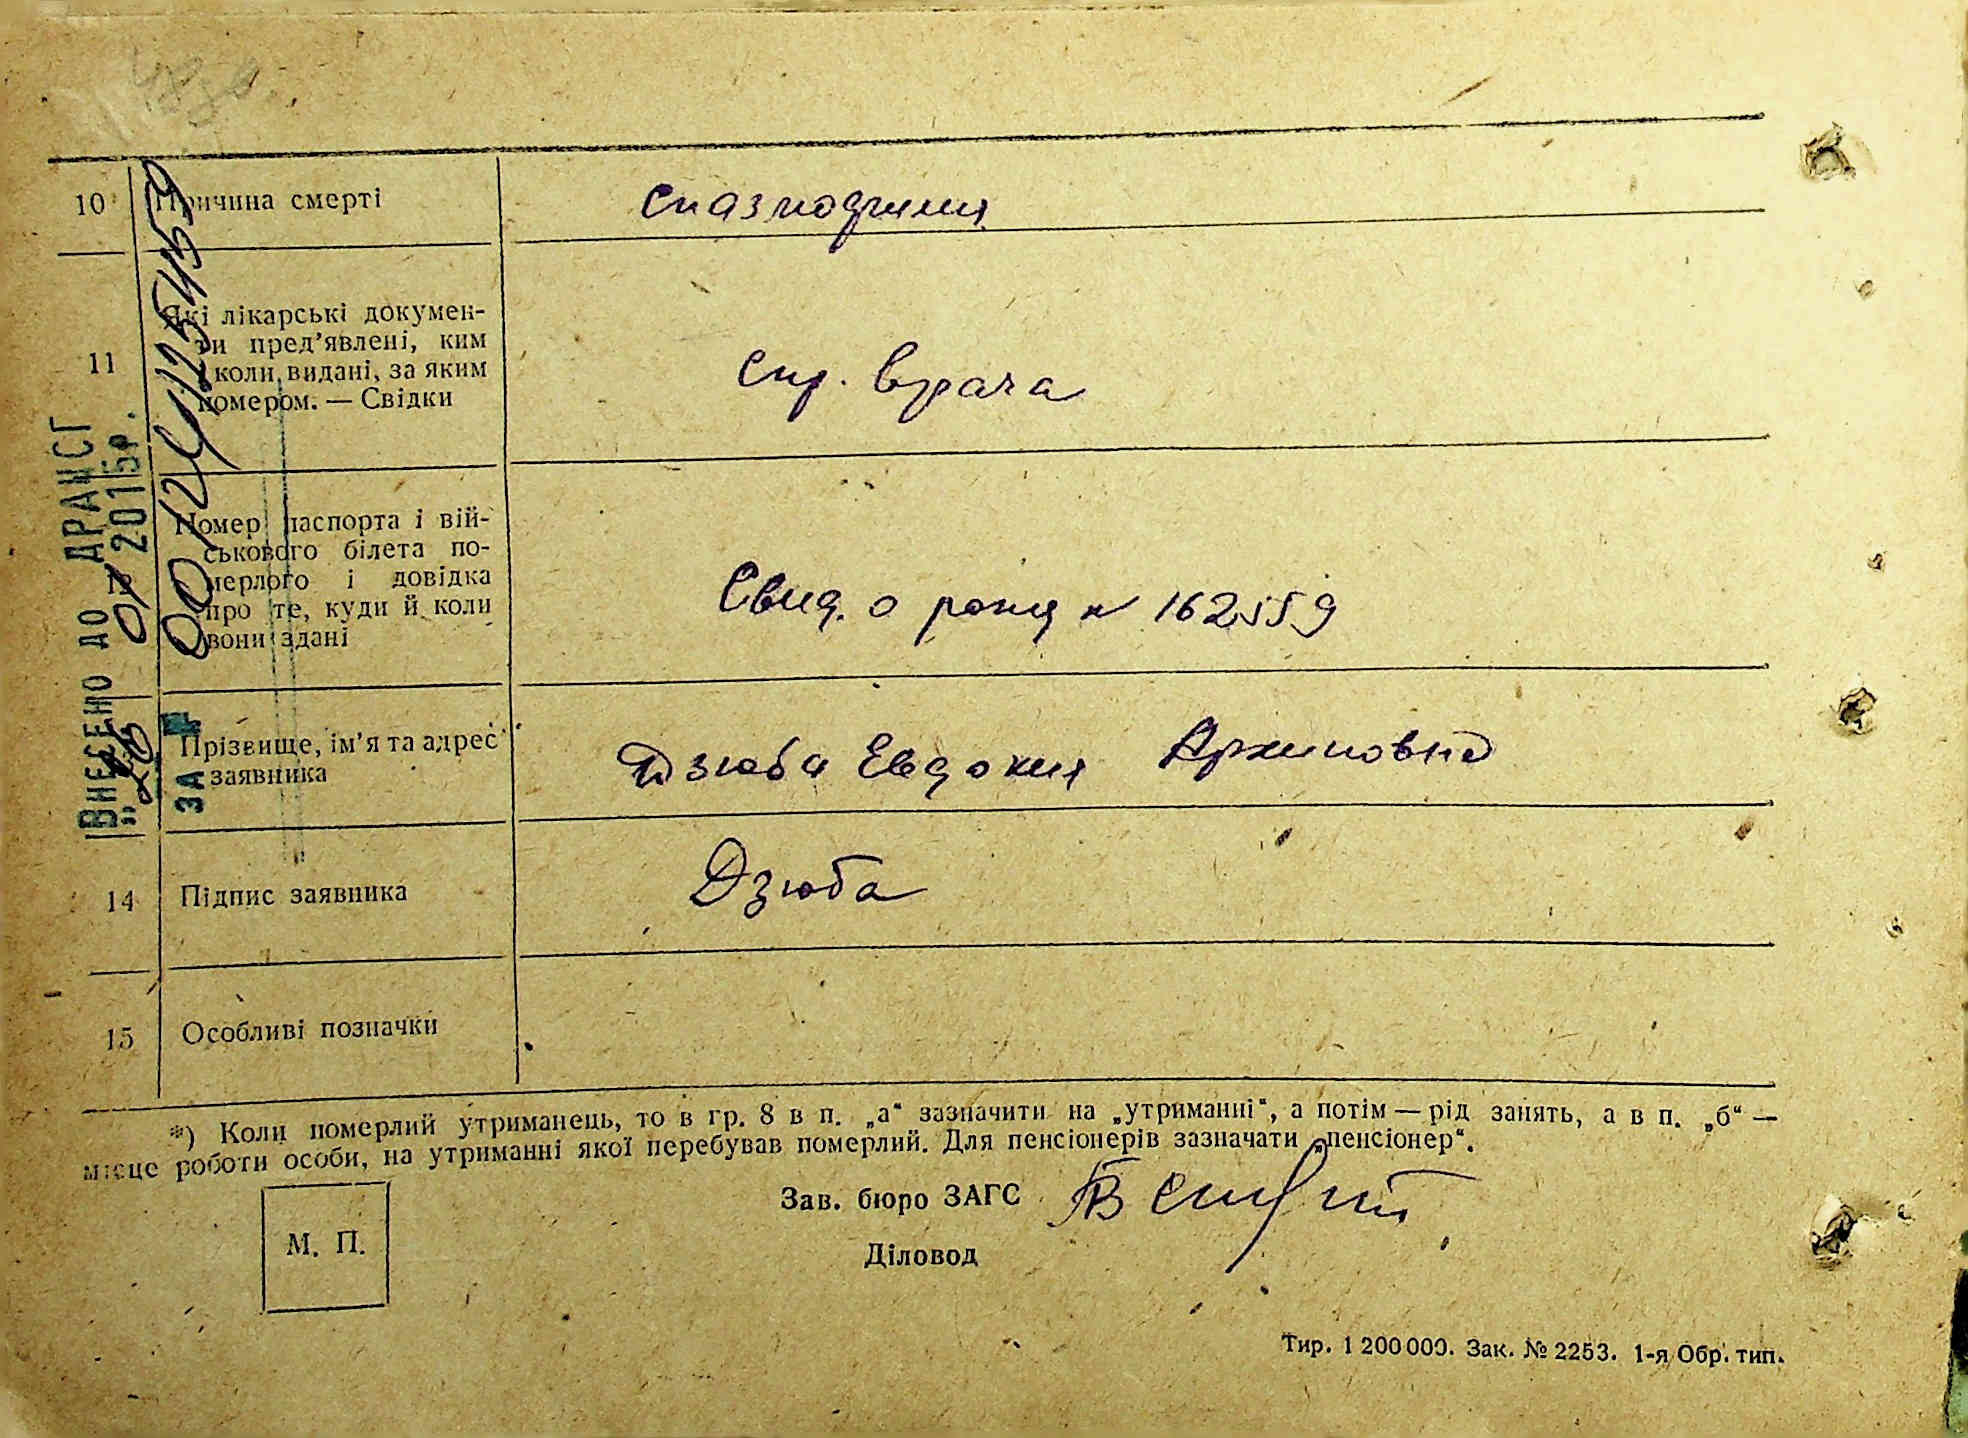 10 Причина смерті Спазмодимия
11 Які лікарські докумен-
ти пред’явлені, ким
і коли видані, за яким
номером. — Свідки
Спр. врача
12 Номер паспорта і вій-
ськового білета по-
мерлого і довідка
про те, куди й коли
вони здані
Свид. о рожд № 162559
Прізвище, ім’я та адрес
заявника
Дзюба Евдокия Архиповна
14 Підпис заявника Дзюба
15 Особливі позначки
*) Коли померлий утриманець, то в гр. 8 в п. „а“ зазначити на „утриманні“, а потім — рід занять, а в п. „б“ —
місце роботи особи, на утриманні якої перебував померлий. Для пенсіонерів зазначати „пенсіонер“.
Зав. бюро ЗАГС
М. П.
Діловод
Тир. 1 200 000. Зак. № 2253. 1-я Обр. тип.
ВНЕСЕНО ДО ДРАЦСГ
„26 01 2015р.
ЗА № 00124125459